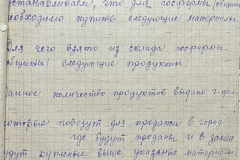 устанавливаем, что для госфермы
необходимо купить следующие материалы
Для чего взято из склада госфермы
следующие продукты
данное количество продуктов видно
повезут для продажи в город
где будут проданы и
будут куплены выше указание материалы.